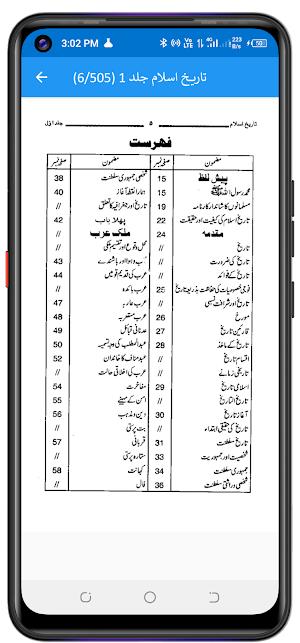 3:02 PM
Vo LTE
4G
223 B/s
50
تاریخ اسلام جلد 1 (6/505)
تاریخ اسلام ۵ جلد اول
فہرست
مضمون صفحہ نمبر
پیش لفظ 15
محمد رسول اللہ ﷺ 15
مسلمانوں کا شاندار کارنامہ 19
تاریخ اسلام کی کیفیت اور حقیقت 22
مقدمہ 24
تاریخ //
تاریخ کی ضرورت //
تاریخ کے فوائد //
قومی خصوصیات کی حفاظت بذریعہ تاریخ 25
تاریخ اور شرافت نسبی //
مورخ 26
قارئین تاریخ 27
تاریخ کے ماخذ 28
اقسام تاریخ //
تاریخی زمانے //
اسلامی تاریخ 29
تاریخ التاریخ //
آغاز تاریخ 30
تاریخ کی حقیقی ابتداء //
تاریخ سلطنت 31
شخصیت اور جمہوریت 33
جمہوری سلطنت 34
شخصی وراثتی سلطنت 36
مضمون صفحہ نمبر
شخصی جمہوری سلطنت 38
ہمارا نقطہ آغاز 40
تاریخ اور جغرافیہ کا تعلق //
پہلا باب 42
ملک عرب //
محل وقوع اور تقسیم ملکی //
آب و ہوا اور باشندے 43
عرب کی قدیم قومیں 44
عرب بائدہ //
عرب عاربہ 47
عرب مستعربہ 48
عدنانی قبائل 49
عبدالمطلب کی وجہ تسمیہ 50
عبد مناف کا خاندان 52
عرب کی اخلاقی حالت //
مفاخرت 54
امن کے مہینے 55
دین و مذہب 56
بت پرستی //
قربانی 57
ستارہ پرستی //
کہانت 58
فال //